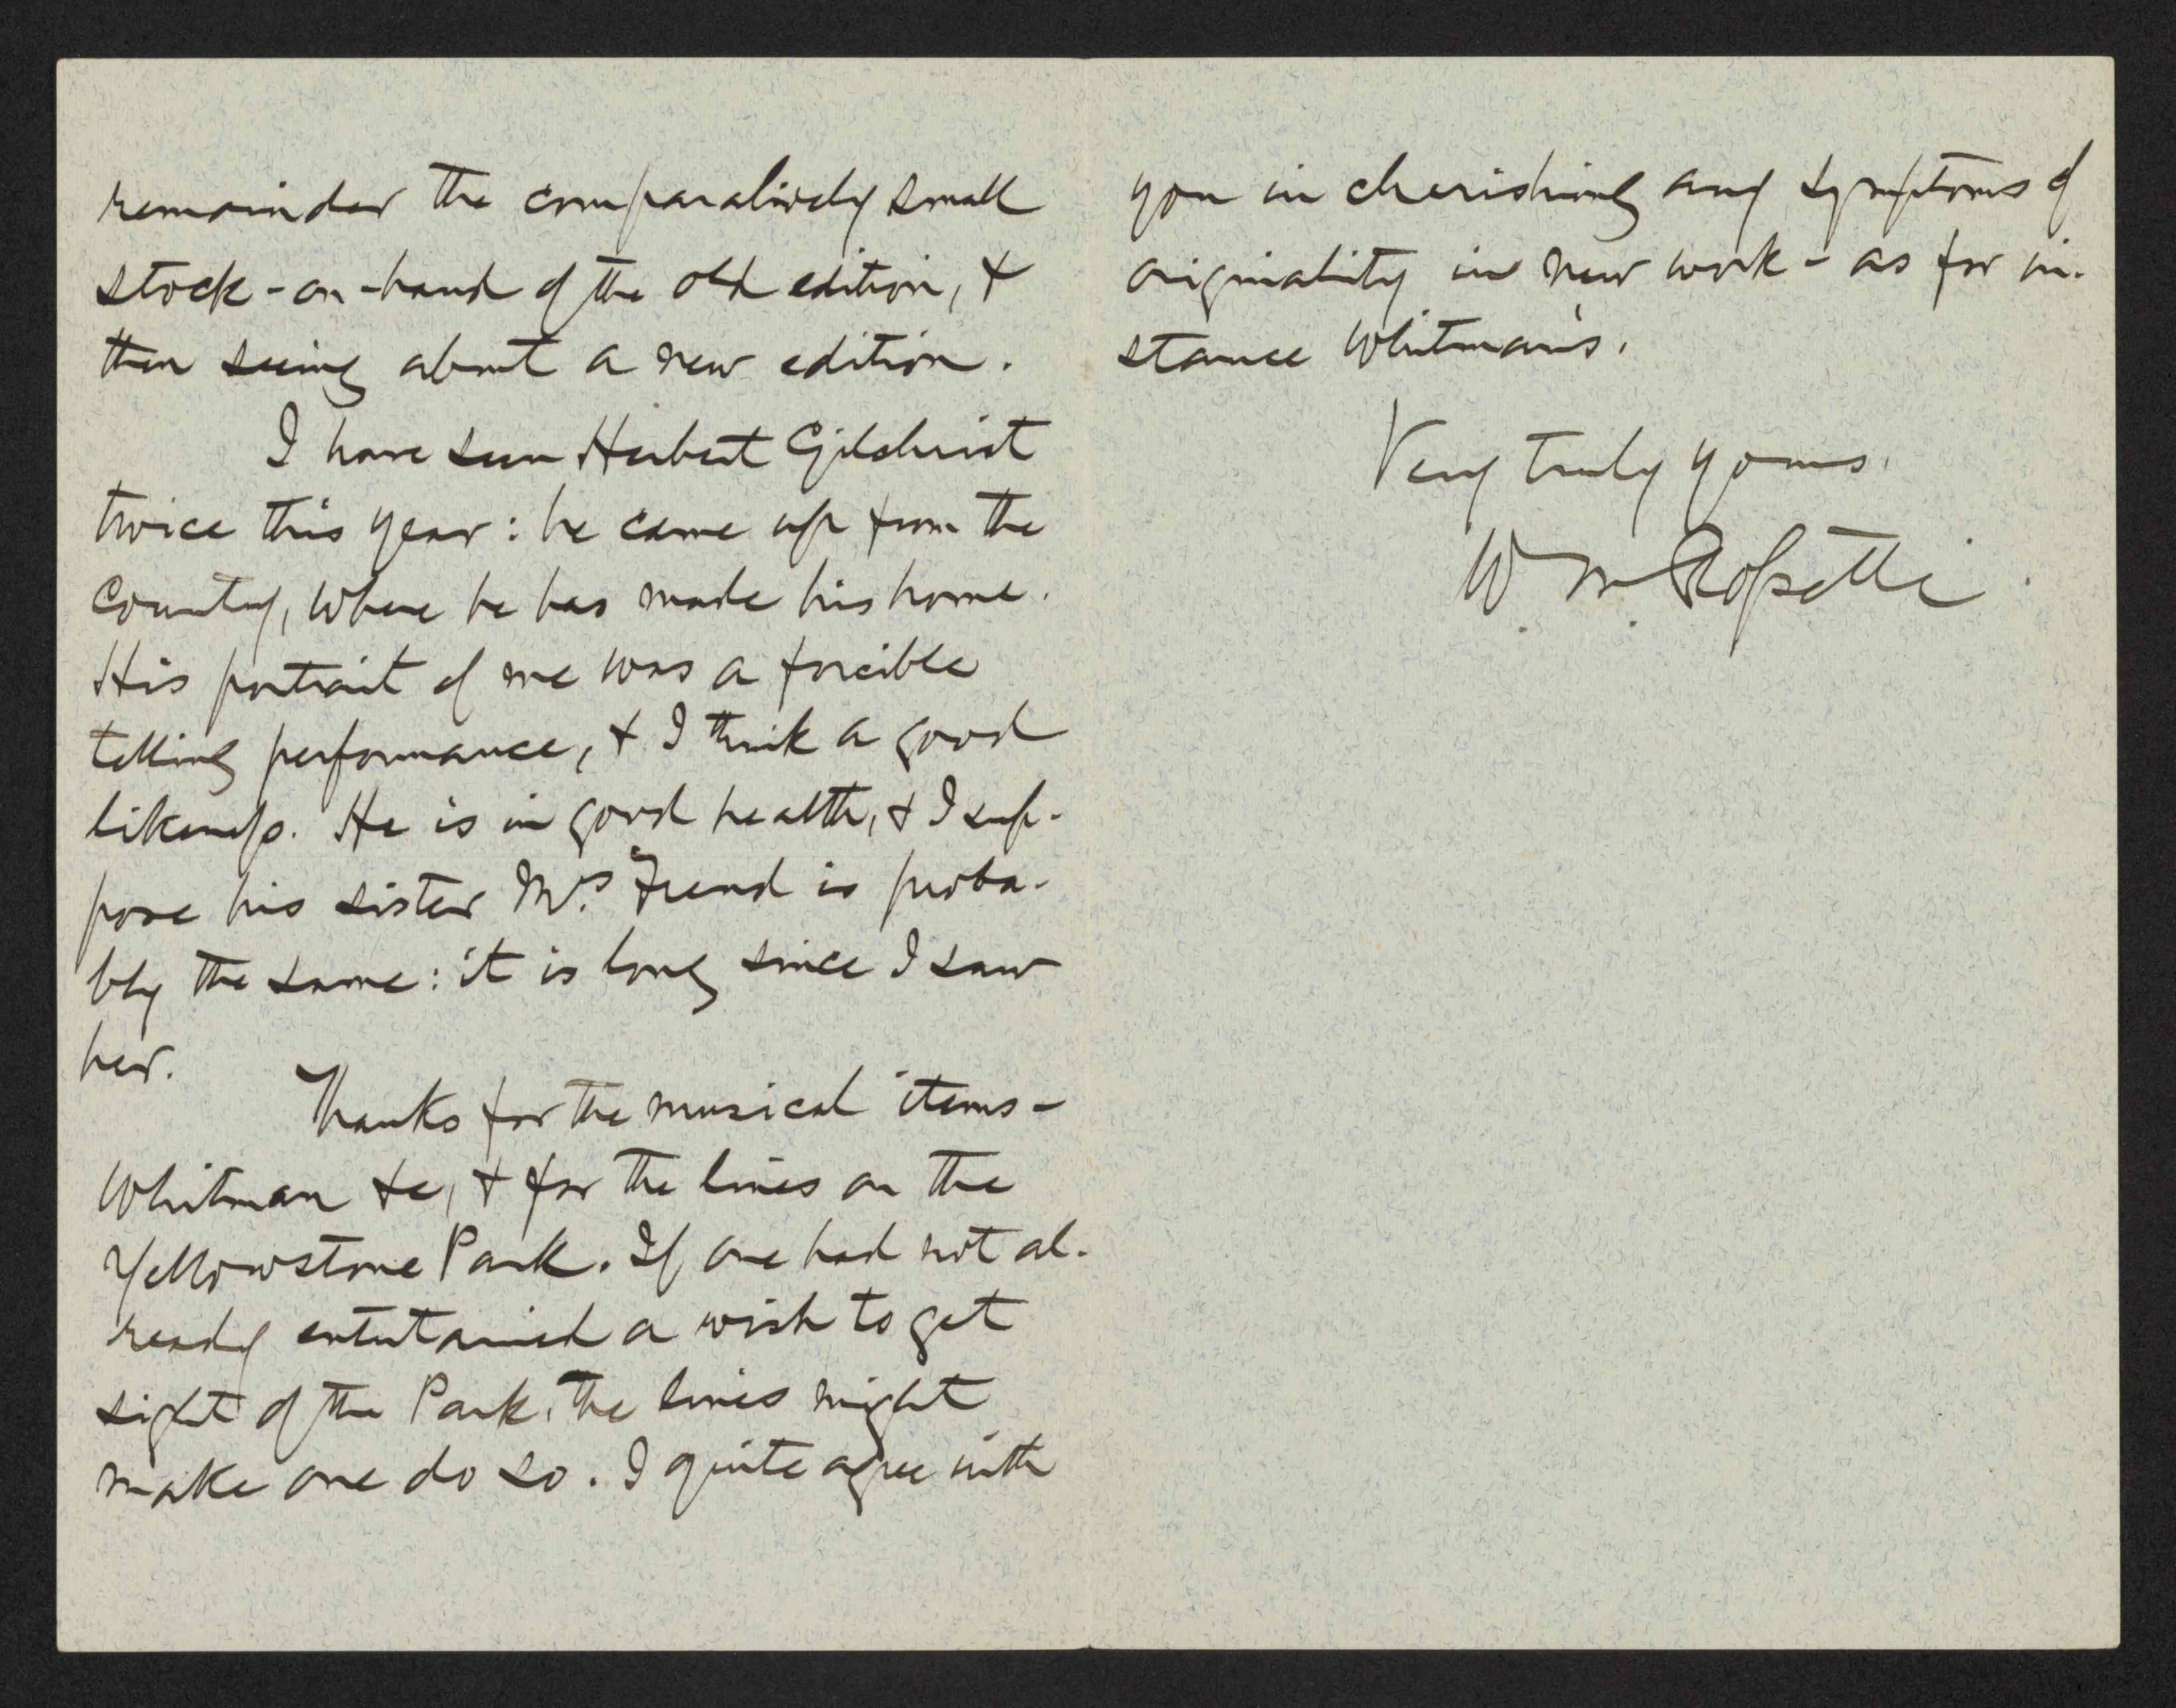 remainder the comparatively small
stock-on-hand of the old edition, &
then seeing about a new edition.
I have seen Herbert Gilchrist
twice this year: he came up from the
country, where he has made his home.
His portrait of me was a forcible
telling performance, & I think a good
likeness. He is in good health, & I sup-
pose his sister Mrs. Frend is proba-
bly the same: it is long since I saw
her.
Thanks for the musical items -
Whitman &c, & for the lines on the
Yellowstone Park. If one had not al-
ready entertained a wish to get
sight of the Park, the lines might
make one do so. I quite agree with
you in cherishing any symptoms of
originality in new work - as for in-
stance Whitman's.
Very truly yours,
W. M. Rossetti.